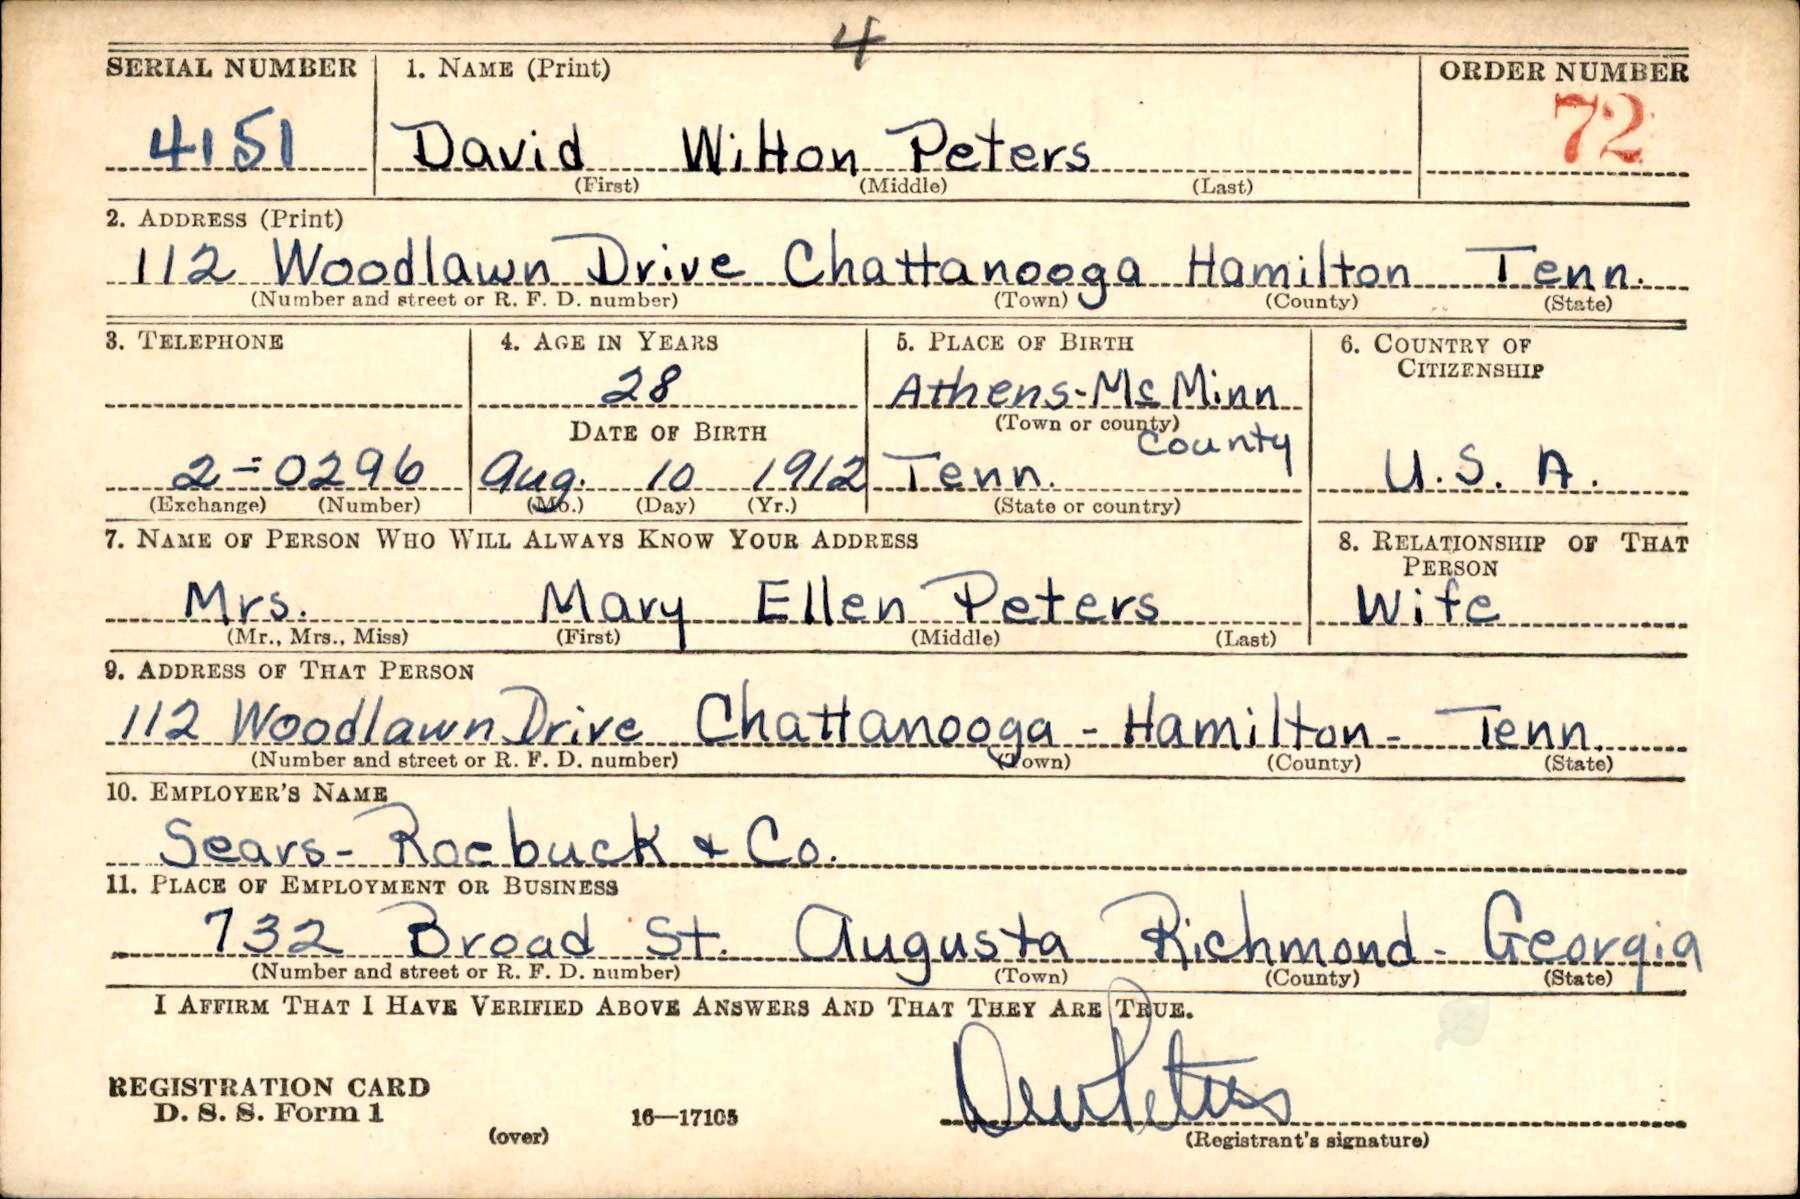 4
SERIAL NUMBER 1. NAME (Print) ORDER NUMBER
4151 David Wilton Peters 72
(First) (Middle) (Last)
2. ADDRESS (Print)
112 Woodlawn Drive Chattanooga Hamilton Tenn.
(Number and street or R. F. D. number) (Town) (County) (State)
3. TELEPHONE 4. AGE IN YEARS 5. PLACE OF BIRTH 6. COUNTRY OF
CITIZENSHIP
28 Athens-McMinn
(Town or county)
DATE OF BIRTH County
2-0296 Aug. 10 1912 Tenn. U.S.A.
(Exchange) (Number) (Mo.) (Day) (Yr.) (State or country)
7. NAME OF PERSON WHO WILL ALWAYS KNOW YOUR ADDRESS 8. RELATIONSHIP OF THAT
PERSON
Mrs. Mary Ellen Peters Wife
(Mr., Mrs., Miss) (First) (Middle) (Last)
9. ADDRESS OF THAT PERSON
112 Woodlawn Drive Chattanooga - Hamilton - Tenn.
(Number and street or R. F. D. number) (Town) (County) (State)
10. EMPLOYER'S NAME
Sears-Roebuck & Co.
11. PLACE OF EMPLOYMENT OR BUSINESS
732 Broad St. Augusta Richmond - Georgia
(Number and street or R. F. D. number) (Town) (County) (State)
I AFFIRM THAT I HAVE VERIFIED ABOVE ANSWERS AND THAT THEY ARE TRUE.
DWPeters
REGISTRATION CARD
D. S. S. Form 1 16—17105
(over) (Registrant's signature)